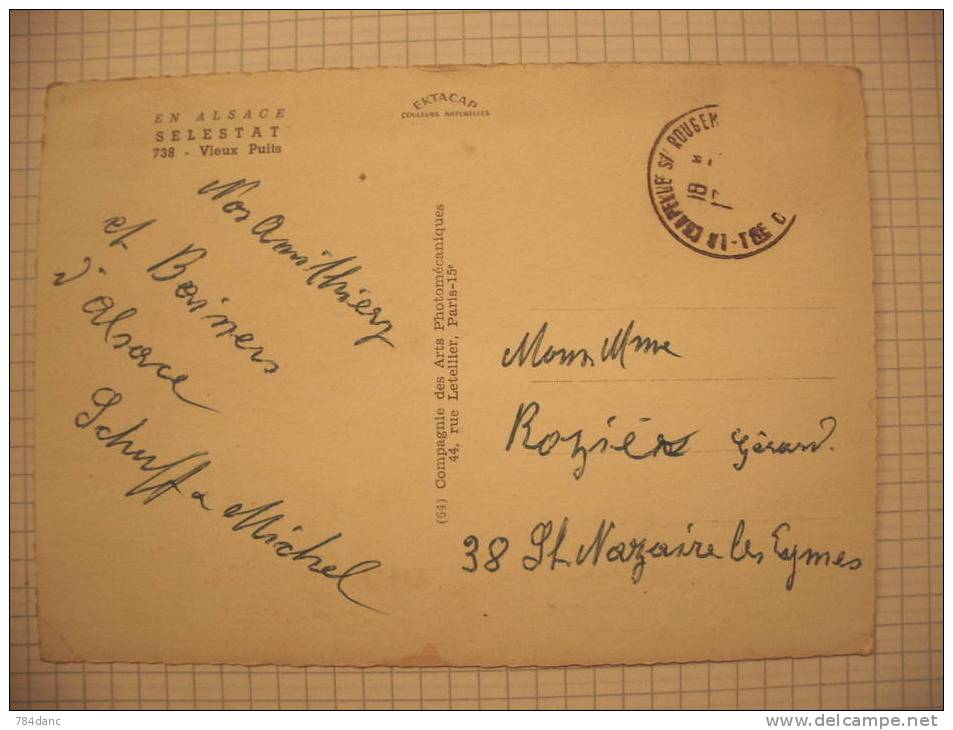 EN ALSACE
SELESTAT
738 - Vieux Puits
EKTACAP
COULEURS NATURELLES
Nos Amithiéz
et Baisers
d'alsace
Schuff & Michel
(64) Compagnie des Arts Photomécaniques
44, rue Letellier, Paris-15e
LA CHAPELLE S/s ROUGEM
18
Mons Mme
Roziés Gérard.
38 St. Nazaire les Eymes
784danc
www.delcampe.net